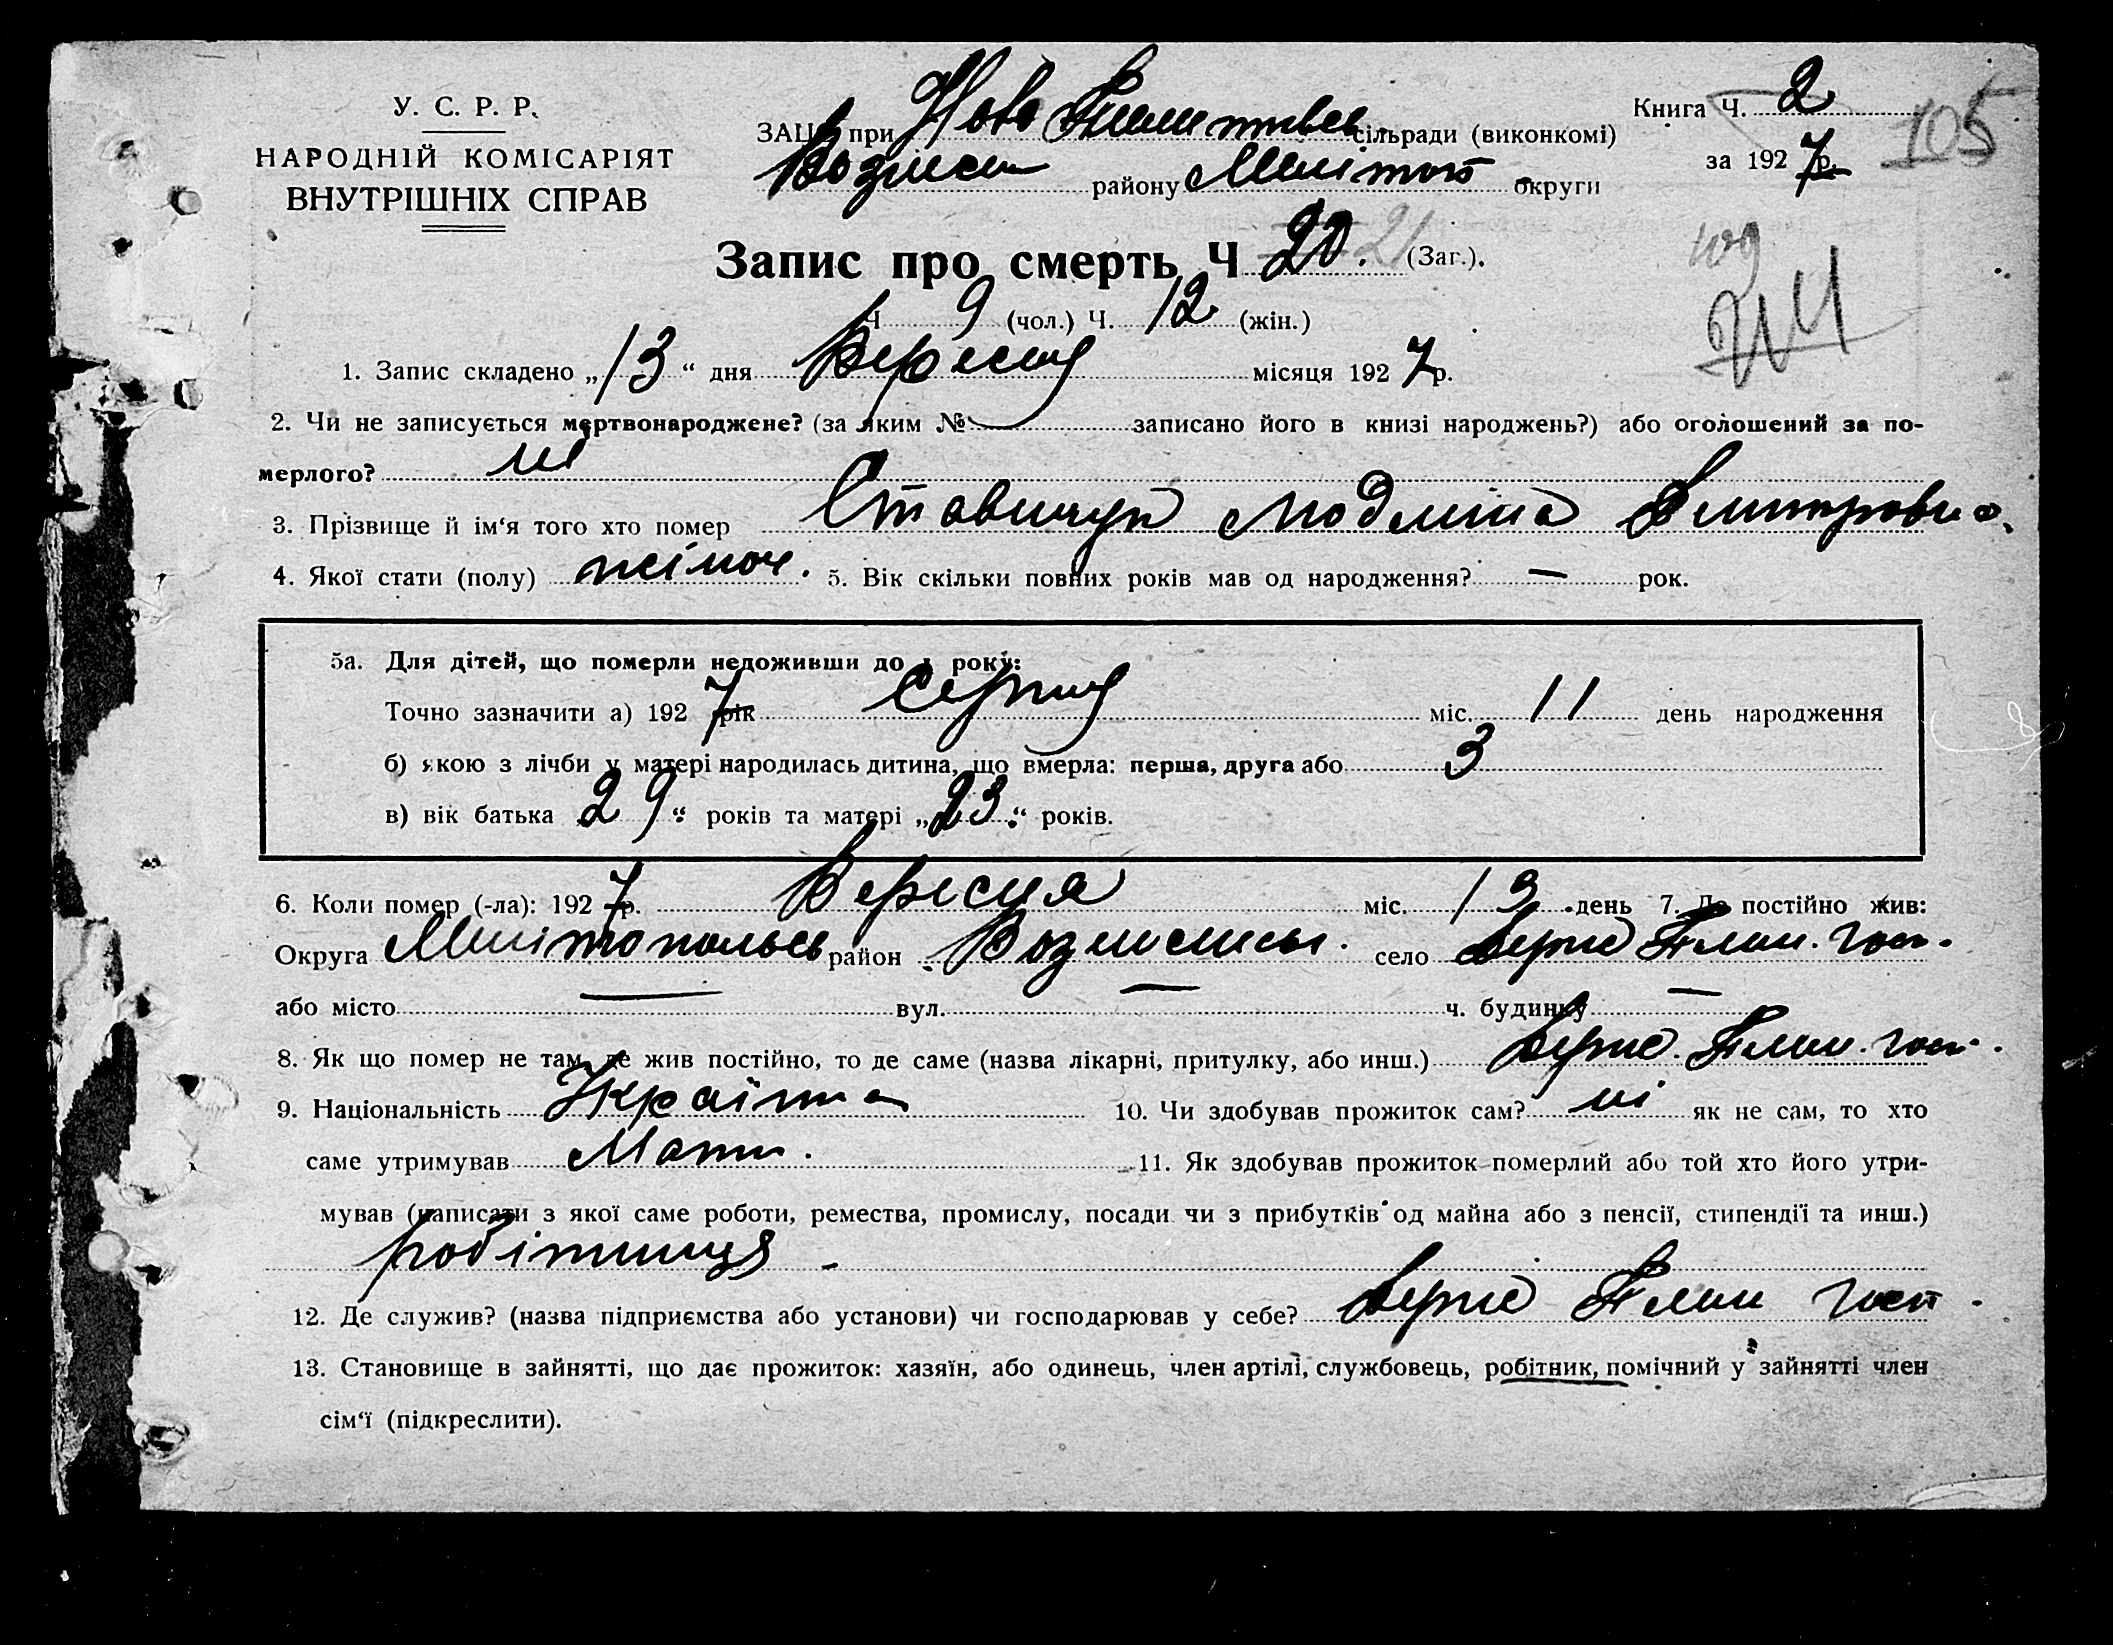 У. С. Р. Р.
НАРОДНІЙ КОМІСАРІЯТ
ВНУТРІШНІХ СПРАВ
ЗАЦС при Ново сільради (виконкомі)
Вознесен району Мелітоп округи
Книга Ч. 2
за 1927 р.
105
Запис про смерть Ч 20. 21 (Заг.).
Ч 9 (чол.) Ч. 12 (жін.)
109
1. Запис складено „13“ дня Вересня місяця 1927 р.
2. Чи не записується мертвонароджене? (за яким № — записано його в книзі народжень?) або оголошений за по-
мерлого? ні
3. Прізвище й ім‘я того хто помер Ставничук Людміла Дмитровна.
4. Якої стати (полу) жіноч. 5. Вік скільки повних років мав од народження? — рок.
5а. Для дітей, що померли недоживши до 1 року:
Точно зазначити а) 1927 рік серпня міс. 11 день народження
б) якою з лічби у матері народилась дитина, що вмерла: перша, друга або 3
в) вік батька „29“ років та матері „23“ років.
6. Коли помер (-ла): 1927 р. Вересня міс. 13 день 7. Де постійно жив:
Округа Мелітопольськ район Вознесенськ. село Держ Плем. Госп.
або місто — вул. — ч. будинку —
8. Як що помер не там, де жив постійно, то де саме (назва лікарні, притулку, або инш.) Держ. Плем. Госп.
9. Національність Українка 10. Чи здобував прожиток сам? ні як не сам, то хто
саме утримував Мати. 11. Як здобував прожиток померлий або той хто його утри-
мував (написати з якої саме роботи, ремества, промислу, посади чи з прибутків од майна або з пенсії, стипендії та инш.)
робітниця
12. Де служив? (назва підприємства або установи) чи господарював у себе? Держ Плем Госп.
13. Становище в зайнятті, що дає прожиток: хазяїн, або одинець, член артілі, службовець, робітник, помічний у зайнятті член
сім‘ї (підкреслити).